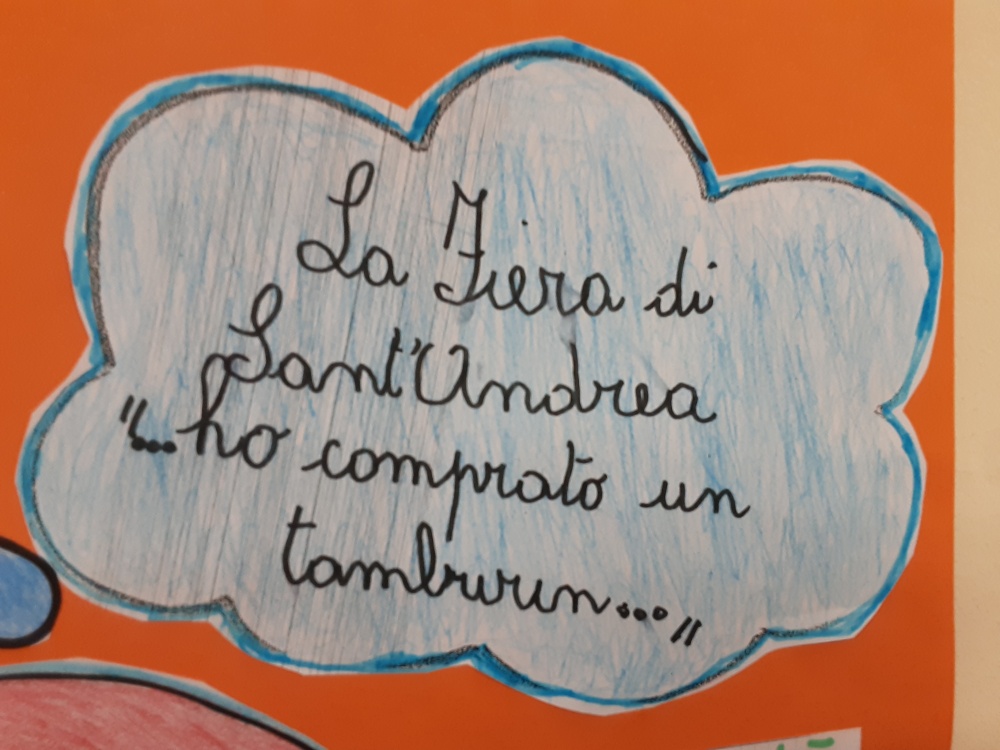 La Fiera di
Sant'Andrea
"...ho comprato un
tamburun..."